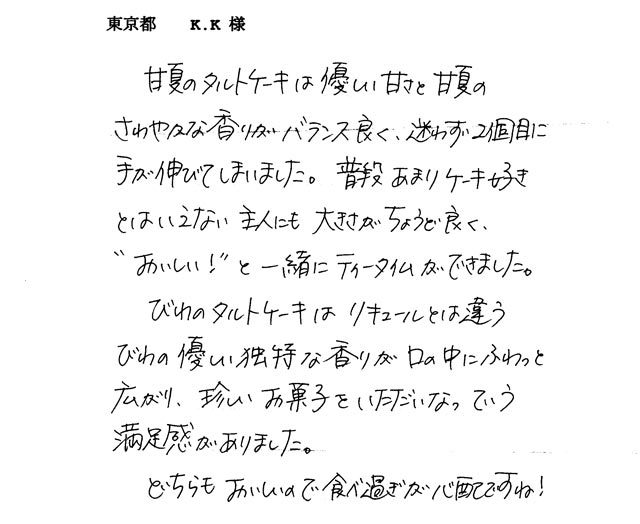 東京都　　K.K 様
甘夏のタルトケーキは優しい甘さと甘夏の
さわやかな香りがバランス良く、迷わず2個目に
手が伸びてしまいました。普段あまりケーキ好き
とはいえない主人にも大きさがちょうど良く、
"おいしい！"と一緒にティータイムができました。
びわのタルトケーキはリキュールとは違う
びわの優しい独特な香りが口の中にふわっと
広がり、珍しいお菓子をいただいなっていう
満足感がありました。
どちらもおいしいので食べ過ぎが心配ですね！